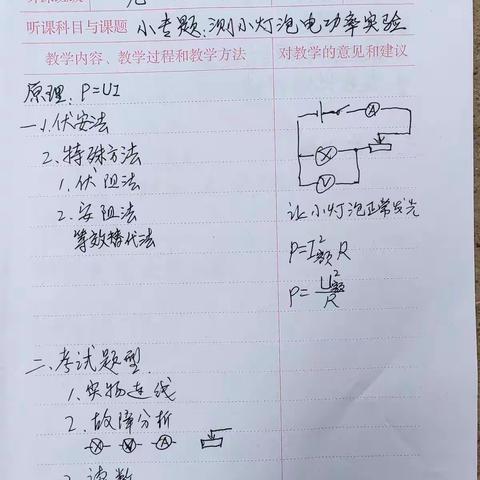 听课科目与课题 小专题:测小灯泡电功率实验
教学内容、教学过程和教学方法
对教学的意见和建议
原理:P=UI
一、1.伏安法
2.特殊方法
1.伏阻法
2.安阻法
等效替代法
A
V
让小灯泡正常发光
P=I²额R
P=U²额/R
二、考试题型
1.实物连线
2.故障分析
A